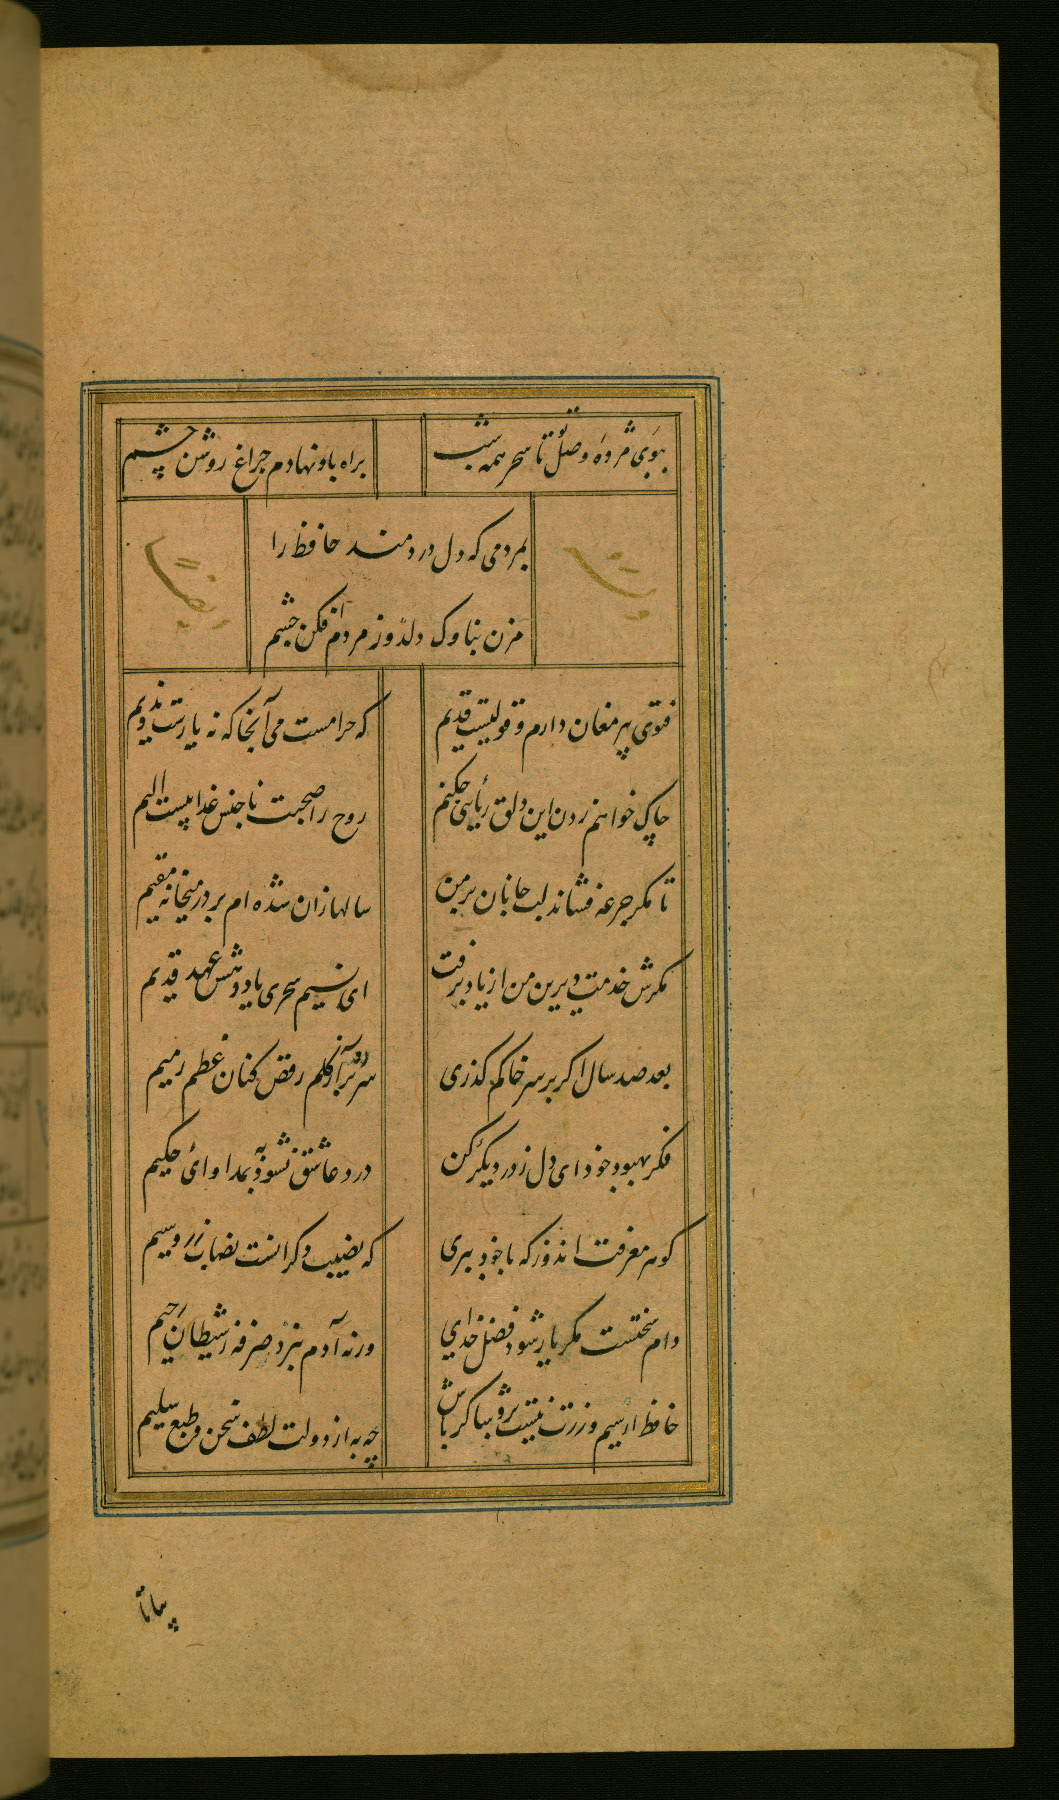 ببوی مژده وصل تو تا سحر همه شب
براه باد نهادم چراغ روشن چشم
بمردمی که دل دردمند حافظ را
مزن بناوک دلدوز مردم افکن چشم
فتوی پیر مغان دارم و قولیست قدیم
که حرامست می آنجا که نه یارست ندیم
چاک خواهم زدن این دلق ریائی چکنم
روح را صحبت ناجنس عذابیست الیم
تا مکر جرعه فشاند لب جانان بر من
سالها زان شده ام بر در میخانه مقیم
مکرش خدمت دیرین من از یاد برفت
ای نسیم سحری یاد دهش عهد قدیم
بعد صد سال اکر بر سر خاکم کذری
سر برآرد ز کلم رقص کنان عظم رمیم
فکر بهبود خود ای دل ز در دیکر کن
درد عاشق نشود به بمداوای حکیم
کوهر معرفت اندوز که با خود ببری
که نصیب دکرانست نصاب زر و سیم
دام سختست مکر یار شود فضل خدای
ورنه آدم نبرد صرفه ز شیطان رجیم
حافظ ار سیم و زرت نیست برو شاکر باش
چه به از دولت لطف سخن و طبع سلیم
بیا تا